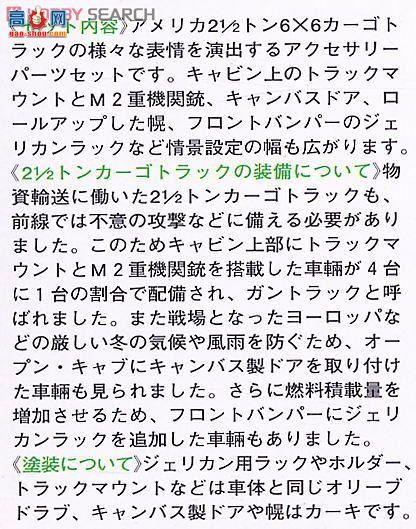 HOBBY SEARCH
高手网
gao-shou.com
ット内容》アメリカ2½トン6×6カーゴト
ラックの様々な表情を演出するアクセサリー
パーツセットです。キャビン上のトラックマ
ウントとM2重機関銃、キャンバスドア、ロ
ールアップした幌、フロントバンパーのジェ
リカンラックなど情景設定の幅も広がります。
《2½トンカーゴトラックの装備について》物
資輸送に働いた2½トンカーゴトラックも、
前線では不意の攻撃などに備える必要があり
ました。このためキャビン上部にトラックマ
ウントとM2重機関銃を搭載した車輛が4台
に1台の割合で配備され、ガントラックと呼
ばれました。また戦場となったヨーロッパな
どの厳しい冬の気候や風雨を防ぐため、オー
プン・キャブにキャンバス製ドアを取り付け
た車輛も見られました。さらに燃料積載量を
増加させるため、フロントバンパーにジェリ
カンラックを追加した車輛もありました。
《塗装について》ジェリカン用ラックやホルダー、
トラックマウントなどは車体と同じオリーブ
ドラブ、キャンバス製ドアや幌はカーキです。